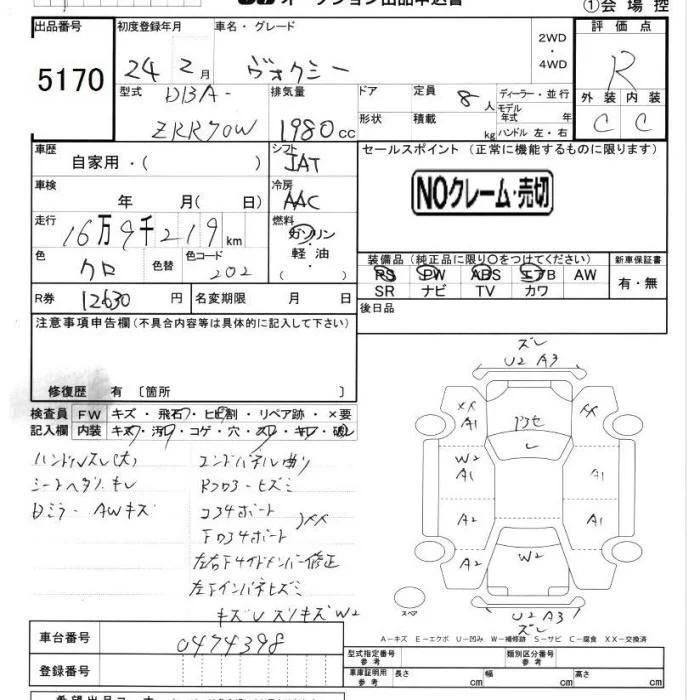 ①会場控
出品番号 初度登録年月 車名・グレード 評価点
5170 24 2月 ヴォクシー 2WD・4WD R
型式 DBA- 排気量 ドア 定員 8人 ディーラー・並行 外装 内装
ZRR70W 1980cc 形状 積載 kg モデル年式 年 C C
ハンドル左・右
車歴 自家用・( ) シフト IAT セールスポイント(正常に機能するものに限ります)
車検 年 月( 日) 冷房 AAC NOクレーム・売切
走行 16万9千219km 燃料 ガソリン
軽油・( )
色 クロ 色替 色コード 202 装備品(純正品に限り○をつけてください) 新車保証書
PS PW ABS エアB AW 有・無
SR ナビ TV カワ
R券 12630円 名変期限 月 日 後日品
注意事項申告欄(不具合内容等は具体的に記入して下さい)
修復歴 有〔箇所 〕
検査員 FW キズ・飛石・ヒビ割・リペア跡・×要
記入欄 内装 キズ・汚・コゲ・穴・スレ・キレ・破
ハンドルスレ(大) エンドパネル曲り
シートヘタリ・キレ
Dミラー AWキズ
左右F4イドメンバー修正
キズUスリキズW2
ズレ
U2 A3
XX A1 XX
W2 A1 A1
A2 A1
A2 W2
スペア
U2 A3
ズレ
A-キズ E-エクボ U-凹み W-補修跡 S-サビ C-腐食 XX-交換済
車台番号 0474398
登録番号 型式指定番号 参考 類別区分番号 参考
車庫証明用 参考 長さ cm 幅 cm 高さ cm